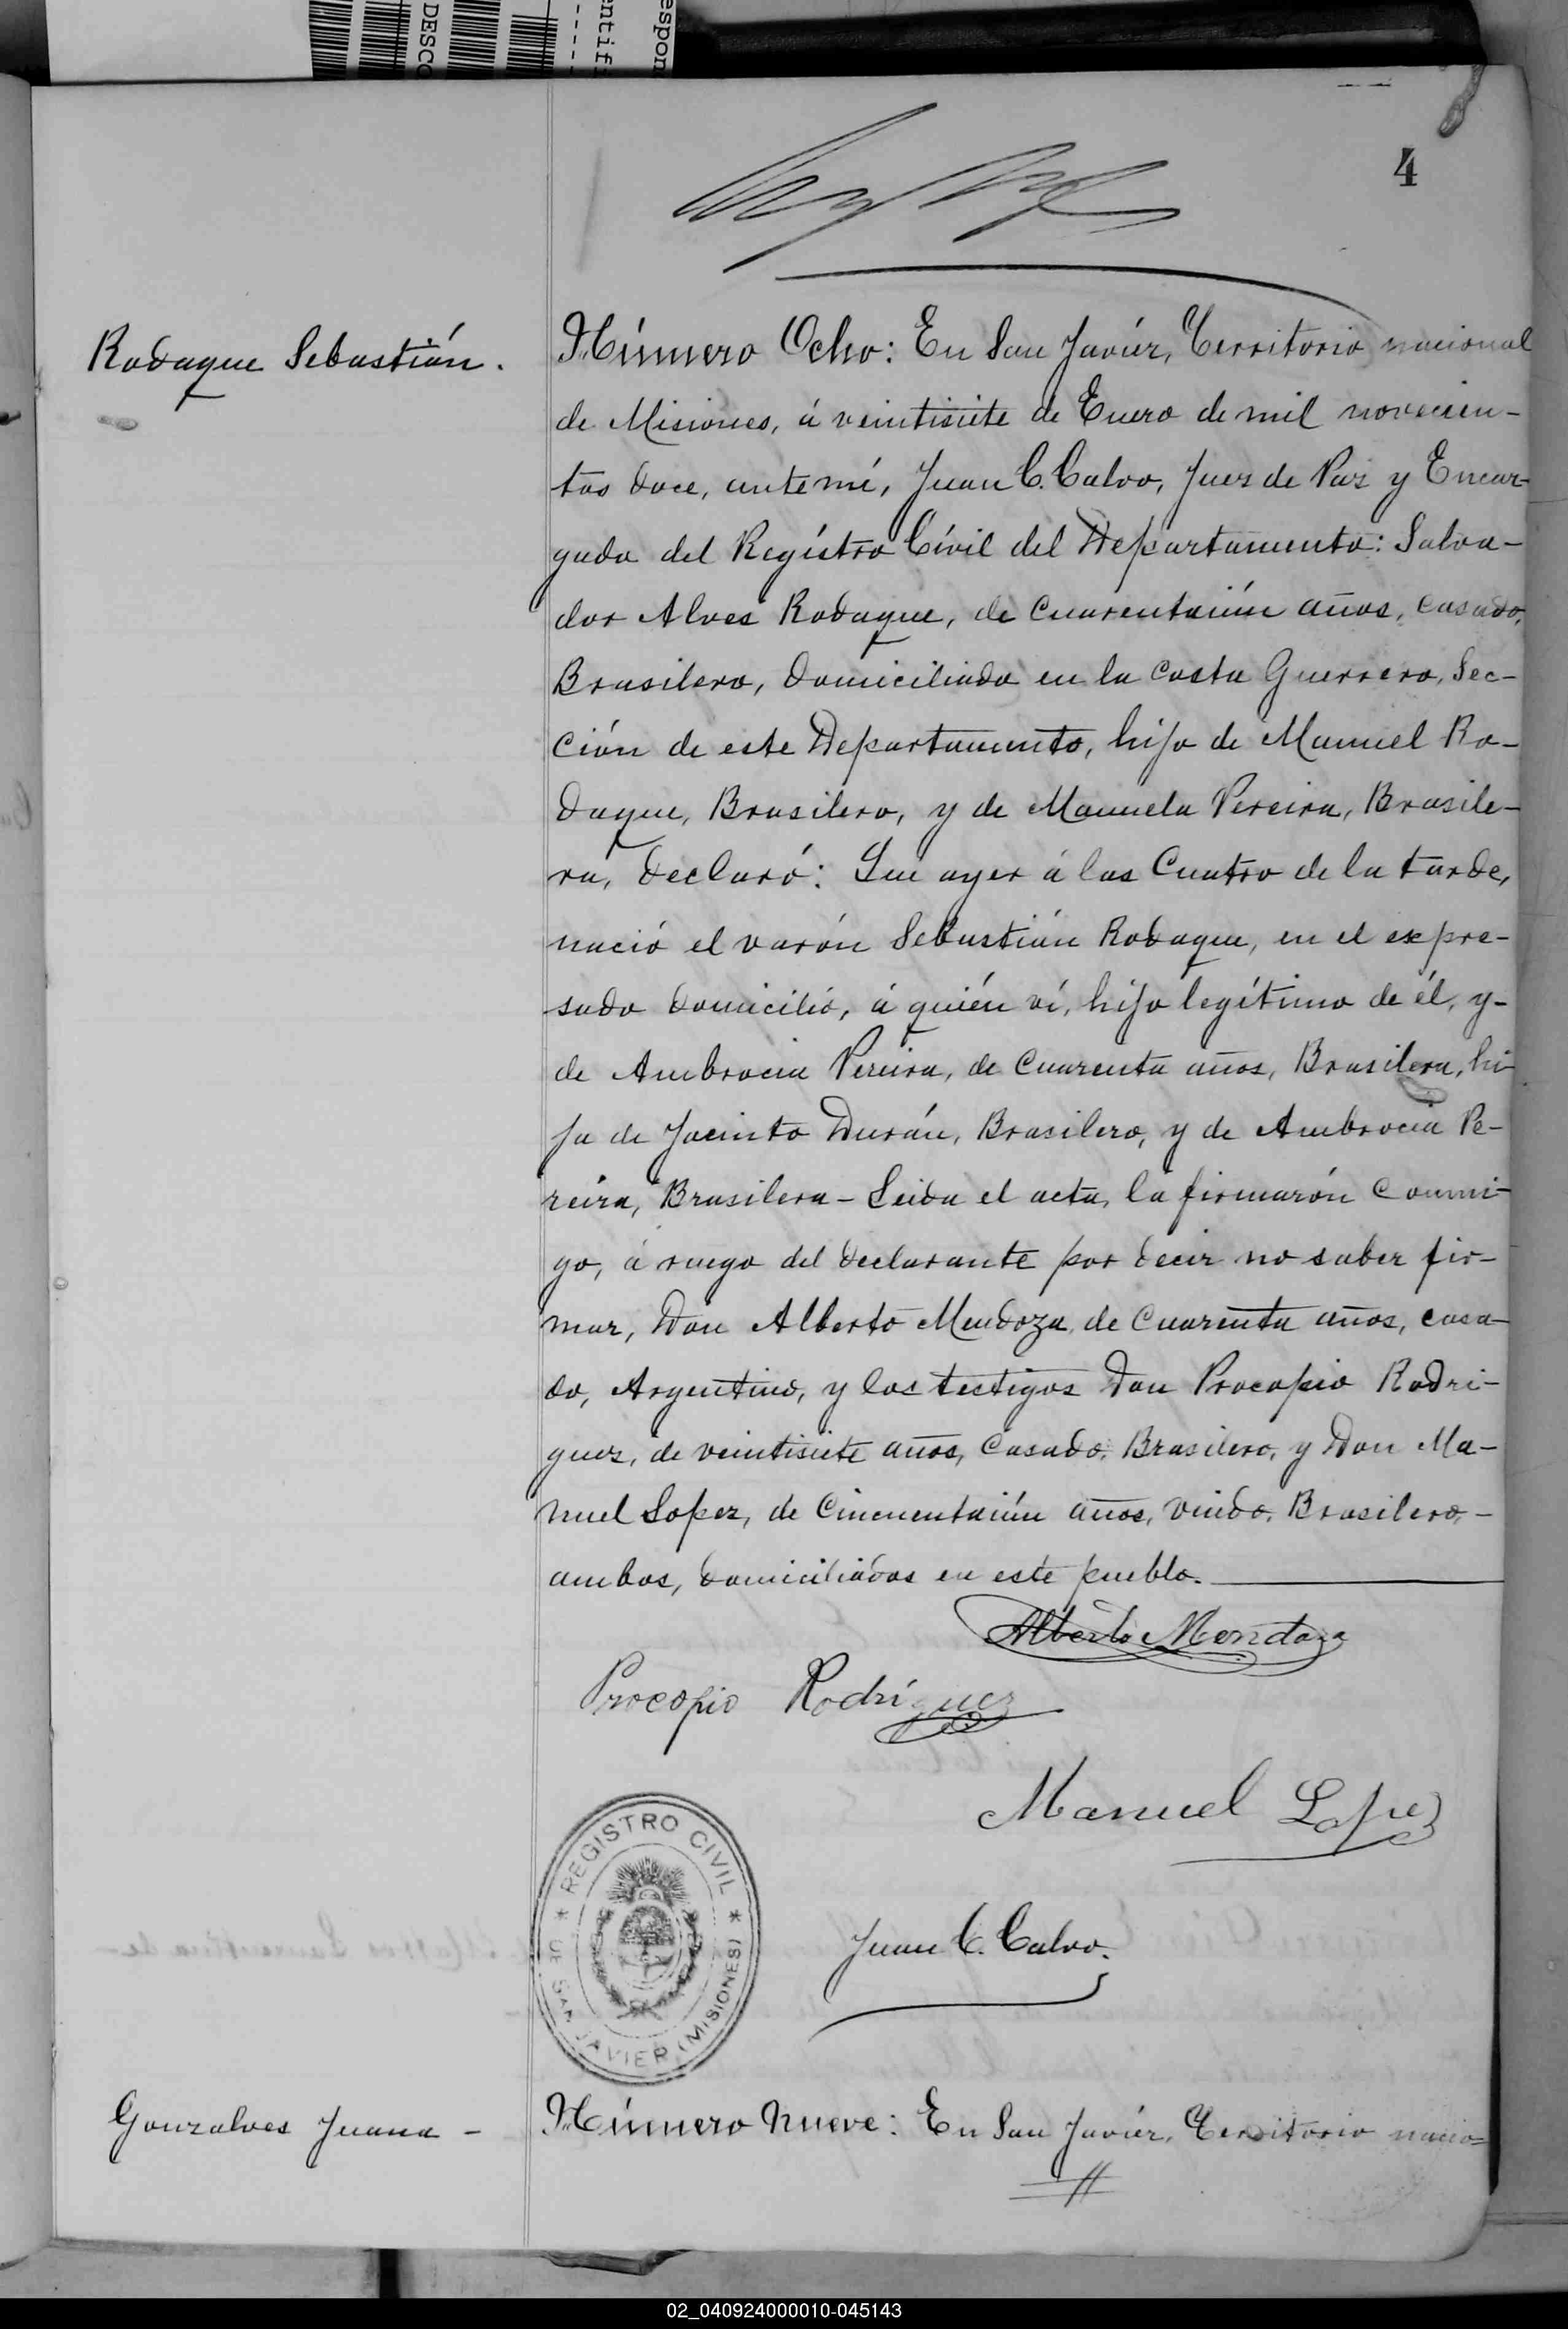 DESCO
entif
espon
4
Rodaque Sebastián.
Número Ocho: En San Javiér, Territorio nacional
de Misiones, á veintisiete de Enero de mil novecien-
tos doce, ante mí, Juan C. Calvo, Juez de Paz y Encar-
gado del Regístro Cívil del Departamento: Salva-
dor Alves Rodaque, de cuarentaiún años, casado,
Brasilero, domiciliado en la costa Guerrero, Sec-
ción de este Departamento, hijo de Manuel Ro-
daque, Brasilero, y de Manuela Pereira, Brasile-
ra, declaró: Que ayer á las Cuatro de la tarde,
nació el varón Sebastián Rodaque, en el expre-
sado domicilió, á quién ví, hijo legítimo de él, y-
de Ambrocia Pereira, de Cuarenta años, Brasilera, hi-
ja de Jacinto Durán, Brasilero, y de Ambrocia Pe-
reira, Brasilera - Leida el acta, la firmarón conmi-
go, á ruego del declarante por decir no saber fir-
mar, Don Alberto Mendoza, de Cuarenta años, casa-
do, Argentino, y los testigos Don Procopio Rodri-
guez, de veintisiete años, Casado, Brasilero, y Don Ma-
nuel Lopez, de Cincuentaiún años, viudo, Brasilero, -
ambos, domiciliados en este pueblo.
Alberto Mendoza
Procopio Rodríguez
Manuel Lopez
REGISTRO CIVIL
DE SAN JAVIER (MISIONES)
Juan C. Calvo.
Gonzalves Juana -
Número Nueve: En San Javiér, Territorio nacio-
02_040924000010-045143